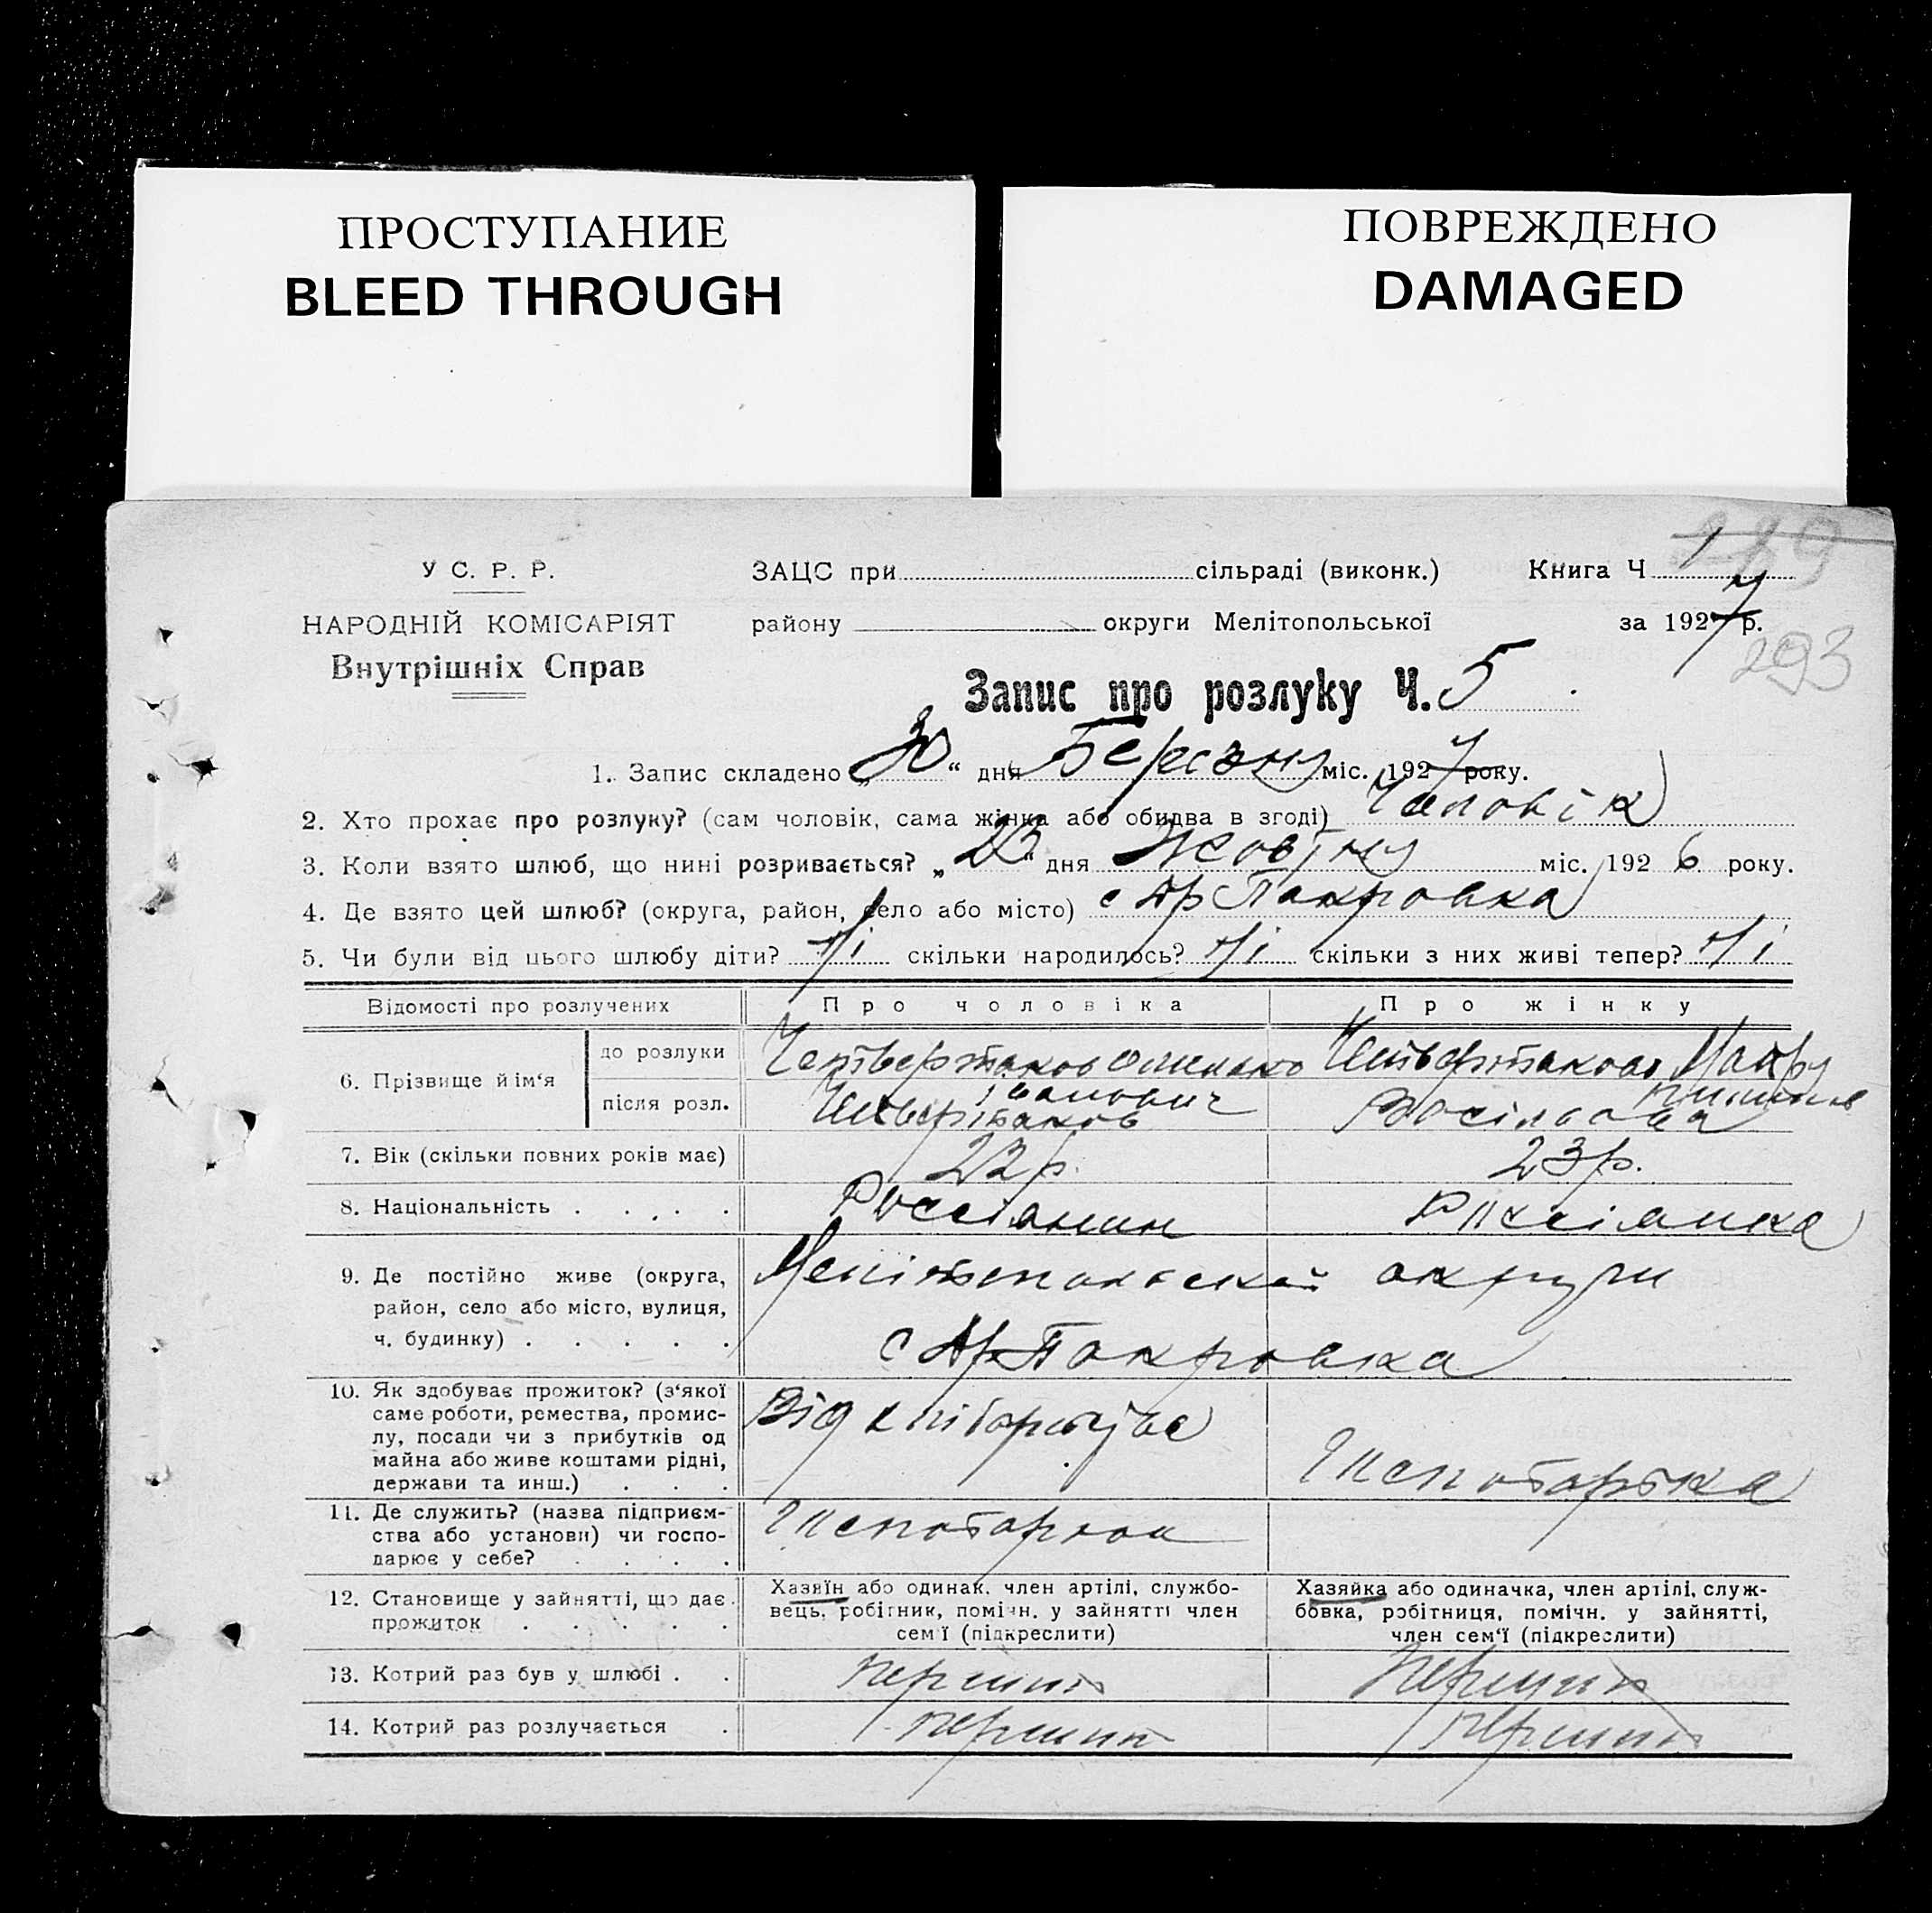 ПРОСТУПАНИЕ
BLEED THROUGH
ПОВРЕЖДЕНО
DAMAGED
293
У С. Р. Р.
НАРОДНІЙ КОМІСАРІЯТ
Внутрішніх Справ
ЗАЦС при сільраді (виконк.) Книга Ч
району округи Мелітопольської за 1927 р.
Запис про розлуку Ч. 5
1. Запис складено „30“ дня Березню міс. 1927 року.
2. Хто прохає про розлуку? (сам чоловік, сама жінка або обидва в згоді) Чаловік
3. Коли взято шлюб, що нині розривається? „23“ дня Жовтню міс. 1926 року.
4. Де взято цей шлюб? (округа, район, село або місто) с Ар Пакровка
5. Чи були від цього шлюбу діти? ні скільки народилось? ні скільки з них живі тепер? ні
Відомості про розлучених Про чоловіка Про жінку
6. Прізвище й ім‘я
до розлуки Четвертаков Четвертакова
після розл. Четвертаков
7. Вік (скільки повних років має) 22 р. 23 р.
8. Національність Россіанин Россіанка
9. Де постійно живе (округа, район, село або місто, вулиця, ч. будинку) Мелітопольской округи
с Ар Пакровка
10. Як здобуває прожиток? (з‘якої
саме роботи, ремества, промис-
лу, посади чи з прибутків од
майна або живе коштами рідні,
держави та инш.)
Від
11. Де служить? (назва підприєм-
ства або установи) чи госпо-
дарює у себе?
12. Становище у зайнятті, що дає
прожиток
Хазяїн або одинак, член артілі, службо-
вець, робітник, помічн. у зайнятті член
сем‘ї (підкреслити)
Хазяйка або одиначка, член артілі, служ-
бовка, робітниця, помічн. у зайнятті,
член сем‘ї (підкреслити)
13. Котрий раз був у шлюбі
14. Котрий раз розлучається